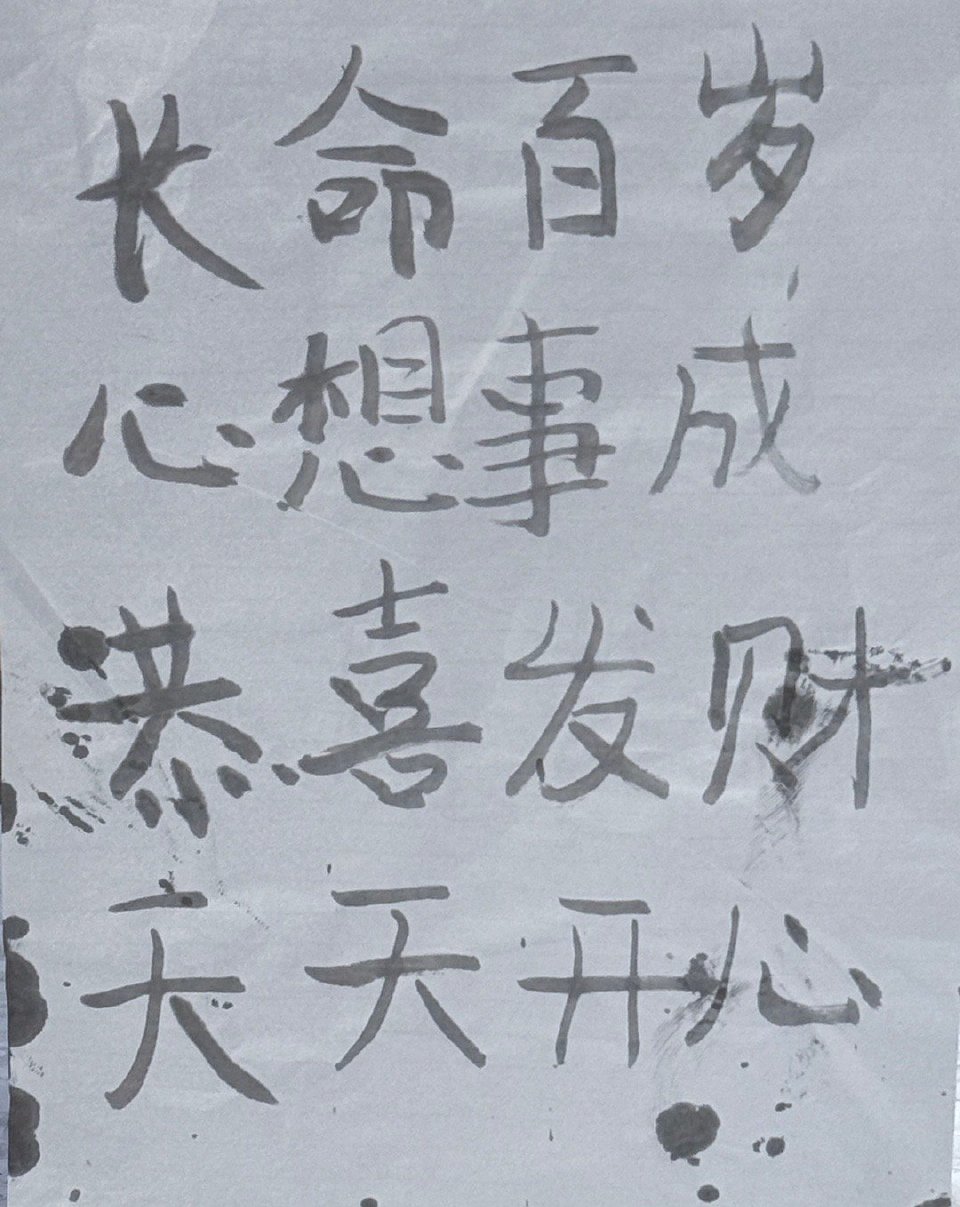 长命百岁
心想事成
恭喜发财
天天开心